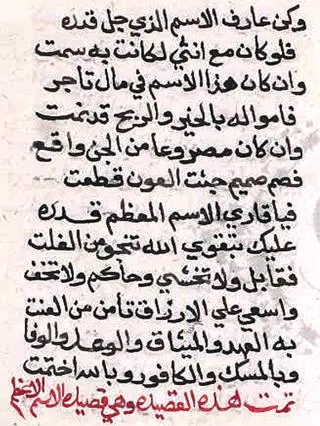 وكن عارف الاسم الذي جل قدره
فلوكان مع انثي لكانت به سمت
وان كان هذا الاسم في مال تاجر
فامواله بالخير والربح قد نمت
وان كان مصروعا من الجن واقع
فصم صميم جئت العون قطعت
فيا قاري الاسم المعظم قدره
عليك بتقوي الله تنجو من الفلت
فقابل ولا تخشي وحاكم ولا تخف
واسعي علي الارزاق تأمن من العنت
به العهد والميثاق والوعد والوفا
وبالمسك والكافور وبا ساختمت
تمت هذه القصيده وهي قصيده الاسم الاعظم